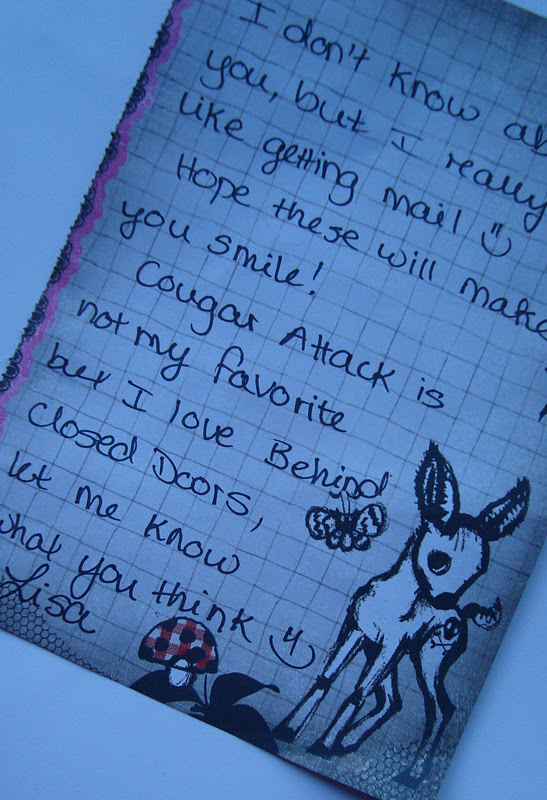 I don't know ab
you, but I really
like getting mail
Hope these will make
you smile!
Cougar Attack is
not my favorite
but I love Behind
Closed Doors,
let me know
what you think
Lisa